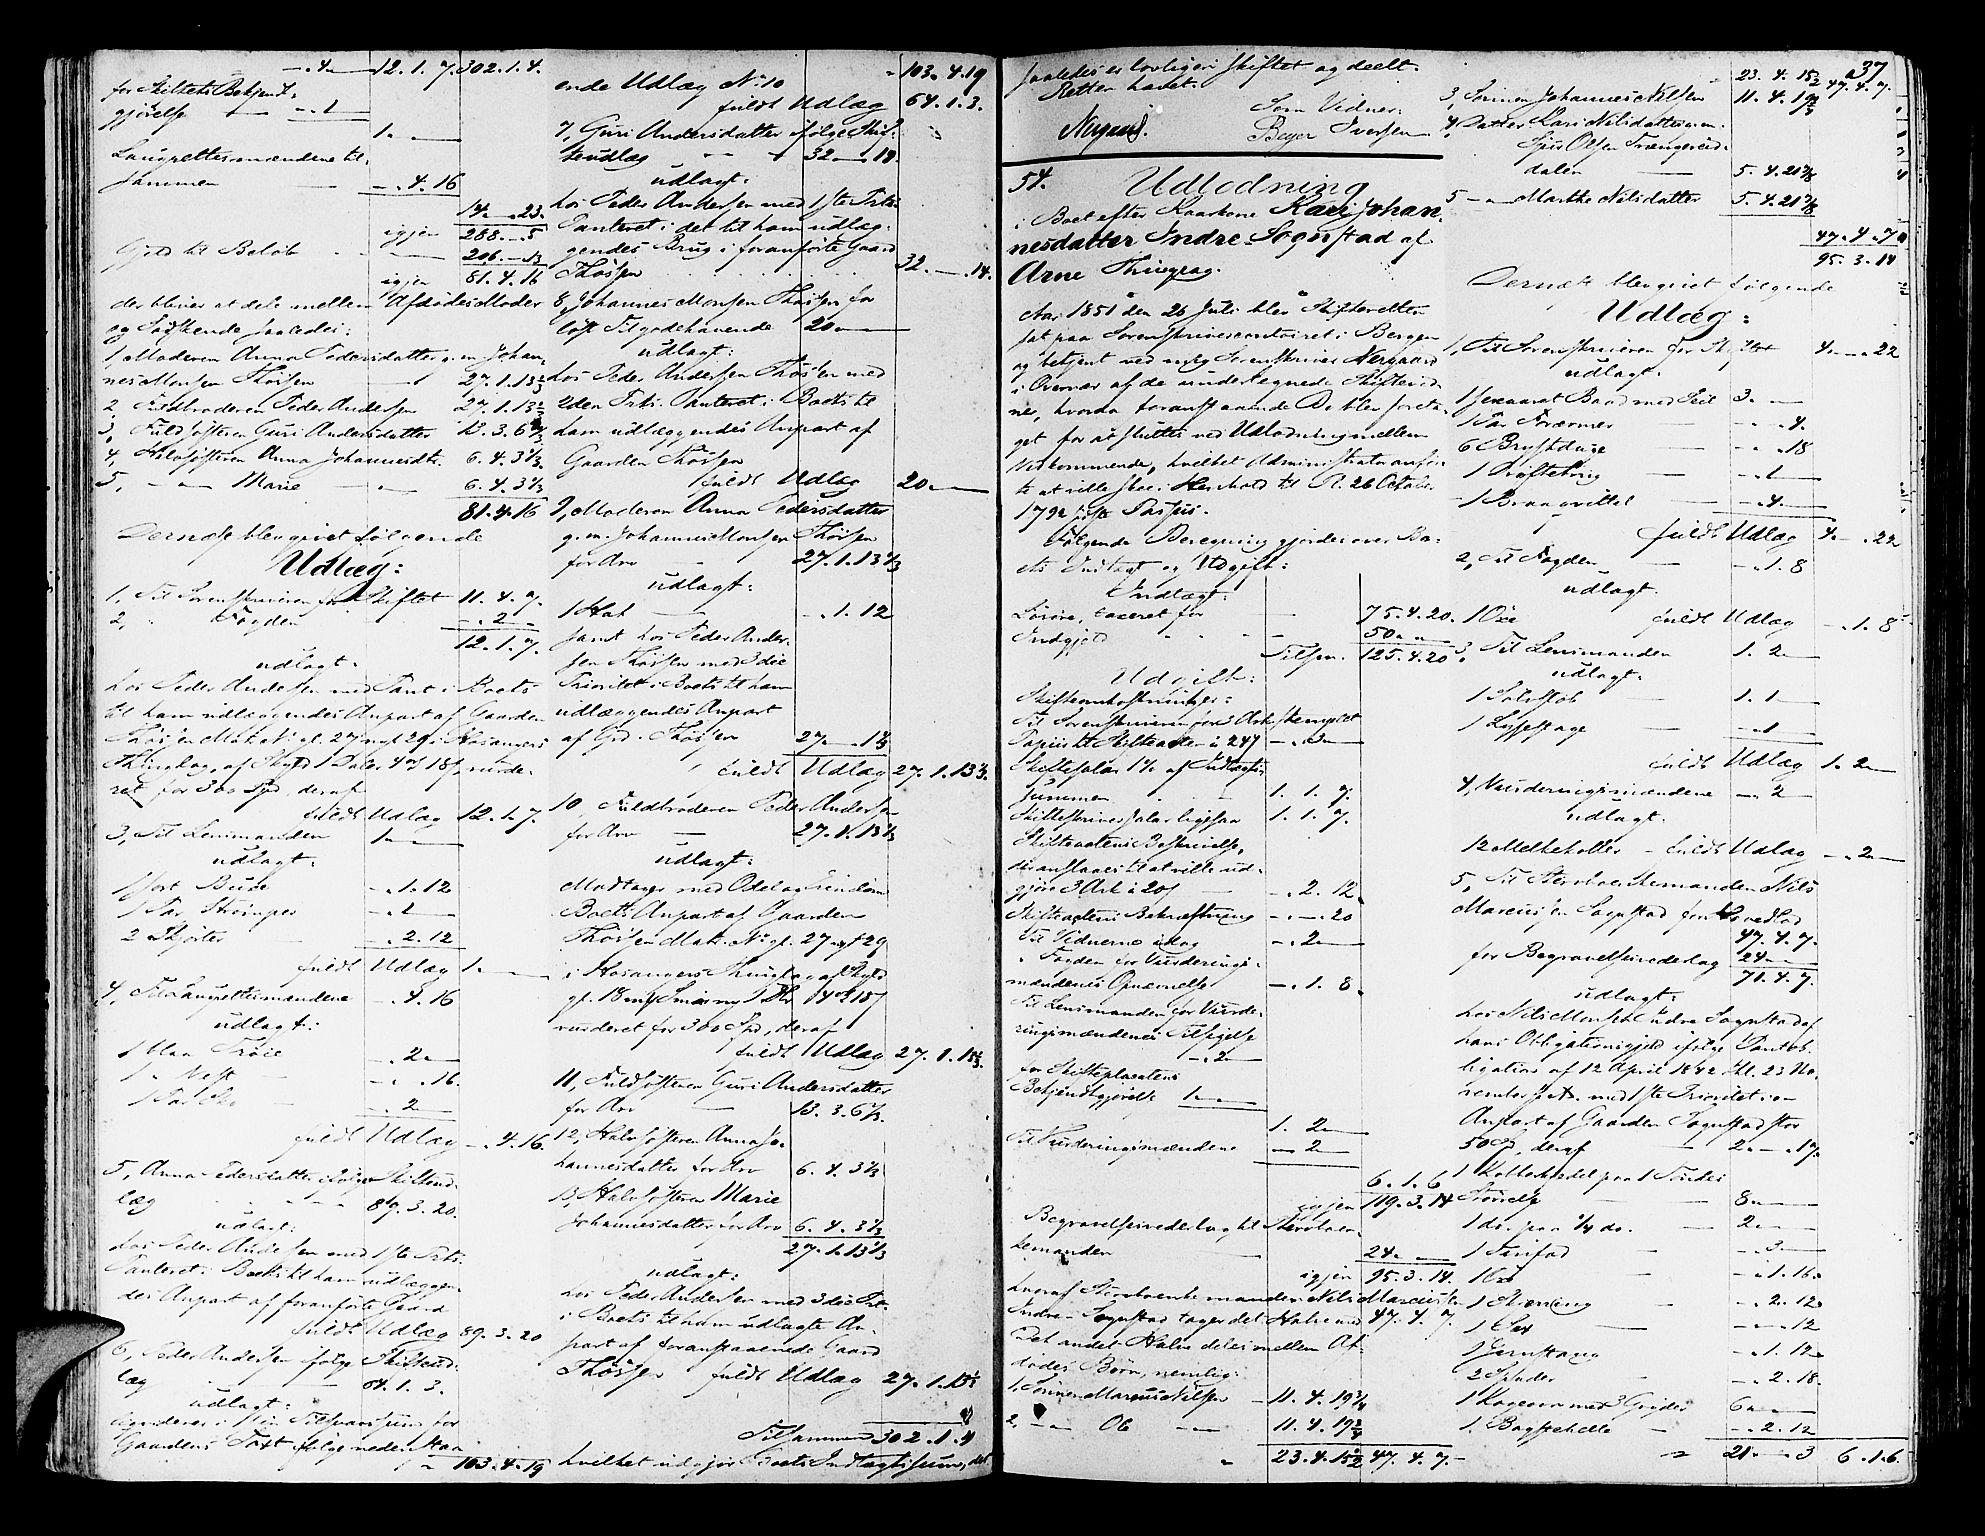 - „ 4 „ — 12. 1. 7. 302. 1. 4.
for Skiftets Bekjendt-
gjørelse — - „ 1 —
1. „ —
Laugrettesmændene til-
sammen — - „ 4. 16
14 „ - 23.
igjen 288. - 5
Gjeld til Beløb 206. - 13
igjen 81. 4. 16
der bliver at dele mellem Afdødes Moder
og Sødskende saaledes:
1, Moderen Anna Pedersdatter g. m. Johan-
nes Monsen Thøssen 27. 1. 13 1/3
2, Fuldbroderen Peder Andersen 27. 1. 13 1/3
3, Fuldsøsteren Guri Andersdatter 13. 3. 6 2/3
4, Halvsøsteren Anna Johannesdtr. 6. 4. 3 1/3
5, — „ — Marie — „ 6. 4. 3 1/3
81. 4. 16
Dernæst blev gjort følgende
Udlæg:
1, Til Sorenskriveren for Skiftet 11. 4. 7.
2, „ Fogden - „ 2 „ —
12. 1. 7.
udlagt:
hos Peder Andersen med Pant i Boets
til ham udlæggendes Anpart af Gaarden
Thøssen Mat. No gl. 27 nyt 29 i Hosangers
Thinglag, af Skyld 1 Daler 4 Ort 18 s, vurde-
ret for 300 Spd, deraf
fuldt Udlæg 12. 1. 7.
3, Til Lensmanden 1 „ —
udlagt:
1 sort Buxe - „ 1. 12
1 Par Strømper - „ 1 —
2 Skjorter - „ 2. 12
fuldt Udlæg 1. „ —
4, Til Laugrettesmændene - „ 4. 16
udlagt:
1 blaa Trøie - „ 2 „ —
1 „ Vest - „ - „ 16.
1 Par Sko - „ 2 —
fuldt Udlæg - „ 4. 16.
5, Anna Pedersdatter ifølge Skifteud-
læg 89. 3. 20.
udlagt:
hos Peder Andersen med 1ste Prts.
Panteret i Boets til ham udlæggen-
des Anpart af foranførte Gaard
fuldt Udlæg 89. 3. 20
6, Peder Andersen ifølge Skifteud-
læg 64. 1. 3.
udlagt:
Gaardens Taxt ifølge nedenstaa-
„ 103. 4. 19
- 103. 4. 19
ende Udlæg No 10
fuldt Udlæg 64. 1. 3.
7, Guri Andersdatter ifølge Skif-
teudlæg 32 — 14.
udlagt:
hos Peder Andersen med 1ste Prts.
Panteret i det til ham udlæg-
gendes Brug i foranførte Gaard
Thøssen 32. — . 14.
8, Johannes Monsen Thøssen for
løst Tilgodehavende 20 „ —
udlagt:
hos Peder Andersen Thøssen med
2den Prts. Panteret i Boets til
ham udlæggendes Anpart af
Gaarden Thøssen
fuldt Udlæg 20 „ —
9, Moderen Anna Pedersdatter
g. m. Johannes Monsen Thøssen
for Arv 27. 1. 13 1/3
udlagt:
1 Hat — - „ 1. 12
samt hos Peder Ander-
sen Thøssen med 3die
Prioritet i Boets til ham
udlæggendes Anpart
af Grd. Thøssen 27 „ — 1 1/3
fuldt Udlæg 27. 1. 13 1/3.
10, Fuldbroderen Peder Andersen
for Arv — 27. 1. 13 1/3
udlagt:
Modtages med Odel og Eiendom
Boets Anpart af Gaarden
Thøssen Mat. No gl. 27 nyt 29
i Hosangers Thinglag af Skyld
gl. 18 mk Smør ny 1 Dlr 4 Ort 18 s
vurderet for 300 Spd, deraf
fuldt Udlæg 27. 1. 13 1/3.
11, Fuldsøsteren Guri Andersdatter
for Arv — 13. 3. 6 2/3.
12, Halvsøsteren Anna Jo-
hannesdatter for Arv 6. 4. 3 1/3
13, Halvsøsteren Marie
Johannesdatter for Arv 6. 4. 3 1/3
27. 1. 13 1/3
udlagt:
hos Peder Andersen med 3die Prt.
i Boets til ham udlagte An-
part af foranstaaende Gaard
Thøssen fuldt Udlæg 27. 1. 13 1/3
Tilsammen 302. 1. 4
hvilket udgjør Boets Indtægtssum, det
saaledes er lovligen skiftet og deelt.
Retten hævet.
Nergaard. Som Vidner:
Beyer Iversen
54. Udlodning
i Boet efter Kaarkone Kari Johan-
nesdatter Indre Sognstad af
Arne Thinglag.
Aar 1851 den 26 Juli blev Skifteretten
sat paa Sorenskrivercontoiret i Bergen
og betjent ved mig Sorenskriver Nergaard
i Overvær af de undertegnede Skiftevid-
ner, hvorda foranstaaende Bo blev foreta-
get for at sluttes ved Udlodning mellem
Vedkommende, hvilket Administrator anfør-
te at ville skee i Henhold til R. 26 October
1792 sidste Passus.
Følgende Beregning gjordes over Bo-
ets Indtægt og Udgift:
Indtægt:
Løsøre, taxeret for — 75. 4. 20.
Indgjeld 50 „ „
Tilsm. 125. 4. 20
Udgift:
Skifteomkostninger:
Til Sorenskriveren for 3 Ark stemplet
Papiir til Skifteakten à 24 s - „ 3 „ —
Skiftesalær 1% af Indtægts-
summen 1. 1. 7.
Skifteskriversalær ligesaa 1. 1. 7.
Skifteaktens Beskrivelse,
der anslaaes til at ville ud-
gjøre 3 Ark à 20 s — - „ 2. 12.
Skifteaktens Bekræftning - „ — „ 20
Til Vidnerne idag - „ 2 —
„ Fogden for Vurderings-
mændenes Opnævnelse — - „ 1. 8.
Til Lensmanden for Vurde-
ringsmændenes Tilsigelse
- „ 2 —
for Skifteplacatens
Bekjendtgjørelse 1 „ —
1. 2 „ —
Til Vurderingsmændene — 2 —
6. 1. 6
igjen 119. 3. 14
Begravelsesvederlag til Stervboen-
kemanden 24 „ —
igjen 95. 3. 14.
hvoraf Stervboenkemanden Nils Marcussen
Indre Sognstad tager det Halve med 47. 4. 7.
Det andet Halve deles mellem Af-
dødes Børn, nemlig:
1, Sønnen Marcus Nilsen — 11. 4. 19 3/4
2, — „ Ole — „ — 11. 4. 19 3/4
„ 23. 4. 15 1/2 47. 4. 7. -
37
23. 4. 15 1/2 47. 4. 7.
3, Sønnen Johannes Nilsen 11. 4. 19 3/4
4, Datter Kari Nilsdatter g. m.
Sjur Olsen Trængereid-
dalen — 5. 4. 21 7/8
5 — „ — Marthe Nilsdatter 5. 4. 21 7/8
47. 4. 7
95. 3. 14
Dernæst blev gjort følgende
Udlæg:
1, Til Sorenskriveren for Skiftet 4 „ — . 22
udlagt:
1 sexaaret Baad med Seil 3. „ —
1 Par Foværmer — - „ 4.
6 Brystduge — - „ - „ 18
1 — - „ 1 —
1 — - „ 4 —
fuldt Udlæg 4 „ - . 22
2, Til Fogden — - „ 1. 8
udlagt:
1 Øxe fuldt Udlæg - „ 1. 8
3, Til Lensmanden 1. 2 „ —
udlagt:
1 — 1. 1 „ —
1 Lysestage — - „ 1 —
fuldt Udlæg 1. 2 „ —
4, Vurderingsmændene — „ 2
udlagt:
12 Melkekoller - fuldt Udlæg - „ 2 „ —
5, Til Stervboenkemanden Nils
Marcussen Sognstad for Hovedlod
47. 4. 7.
for Begravelsesvederlag 24 „ —
71. 4. 7.
udlagt:
hos Nils Monsen Indre Sognstad af
hans Obligationsgjeld ifølge Pantob-
ligation af 12 April 1842 tl. 23 No-
vember s. A. med 1ste Prioritet i en
Anpart af Gaarden Sognstad stor
50 Spd, deraf — 2 „ — . 17.
1 Kobberkedel paa 1 Tøndes
Størrelse — 8 „ —
1 do. paa 1/4 do. — 2 „ —
1 — - „ 3 „ —
1 Øxe — - „ 1. 16.
1 — - „ 2. 12.
1 — - „ — „ 12
1 Jernstang — - „ 1. 12
2 Spader — - „ 2. 18.
1 Kogeovn med 3 Gryder 6 „ —
1. Bagstehelle — - „ 2. 12
„ 21 — „ 3 6. 1. 6.